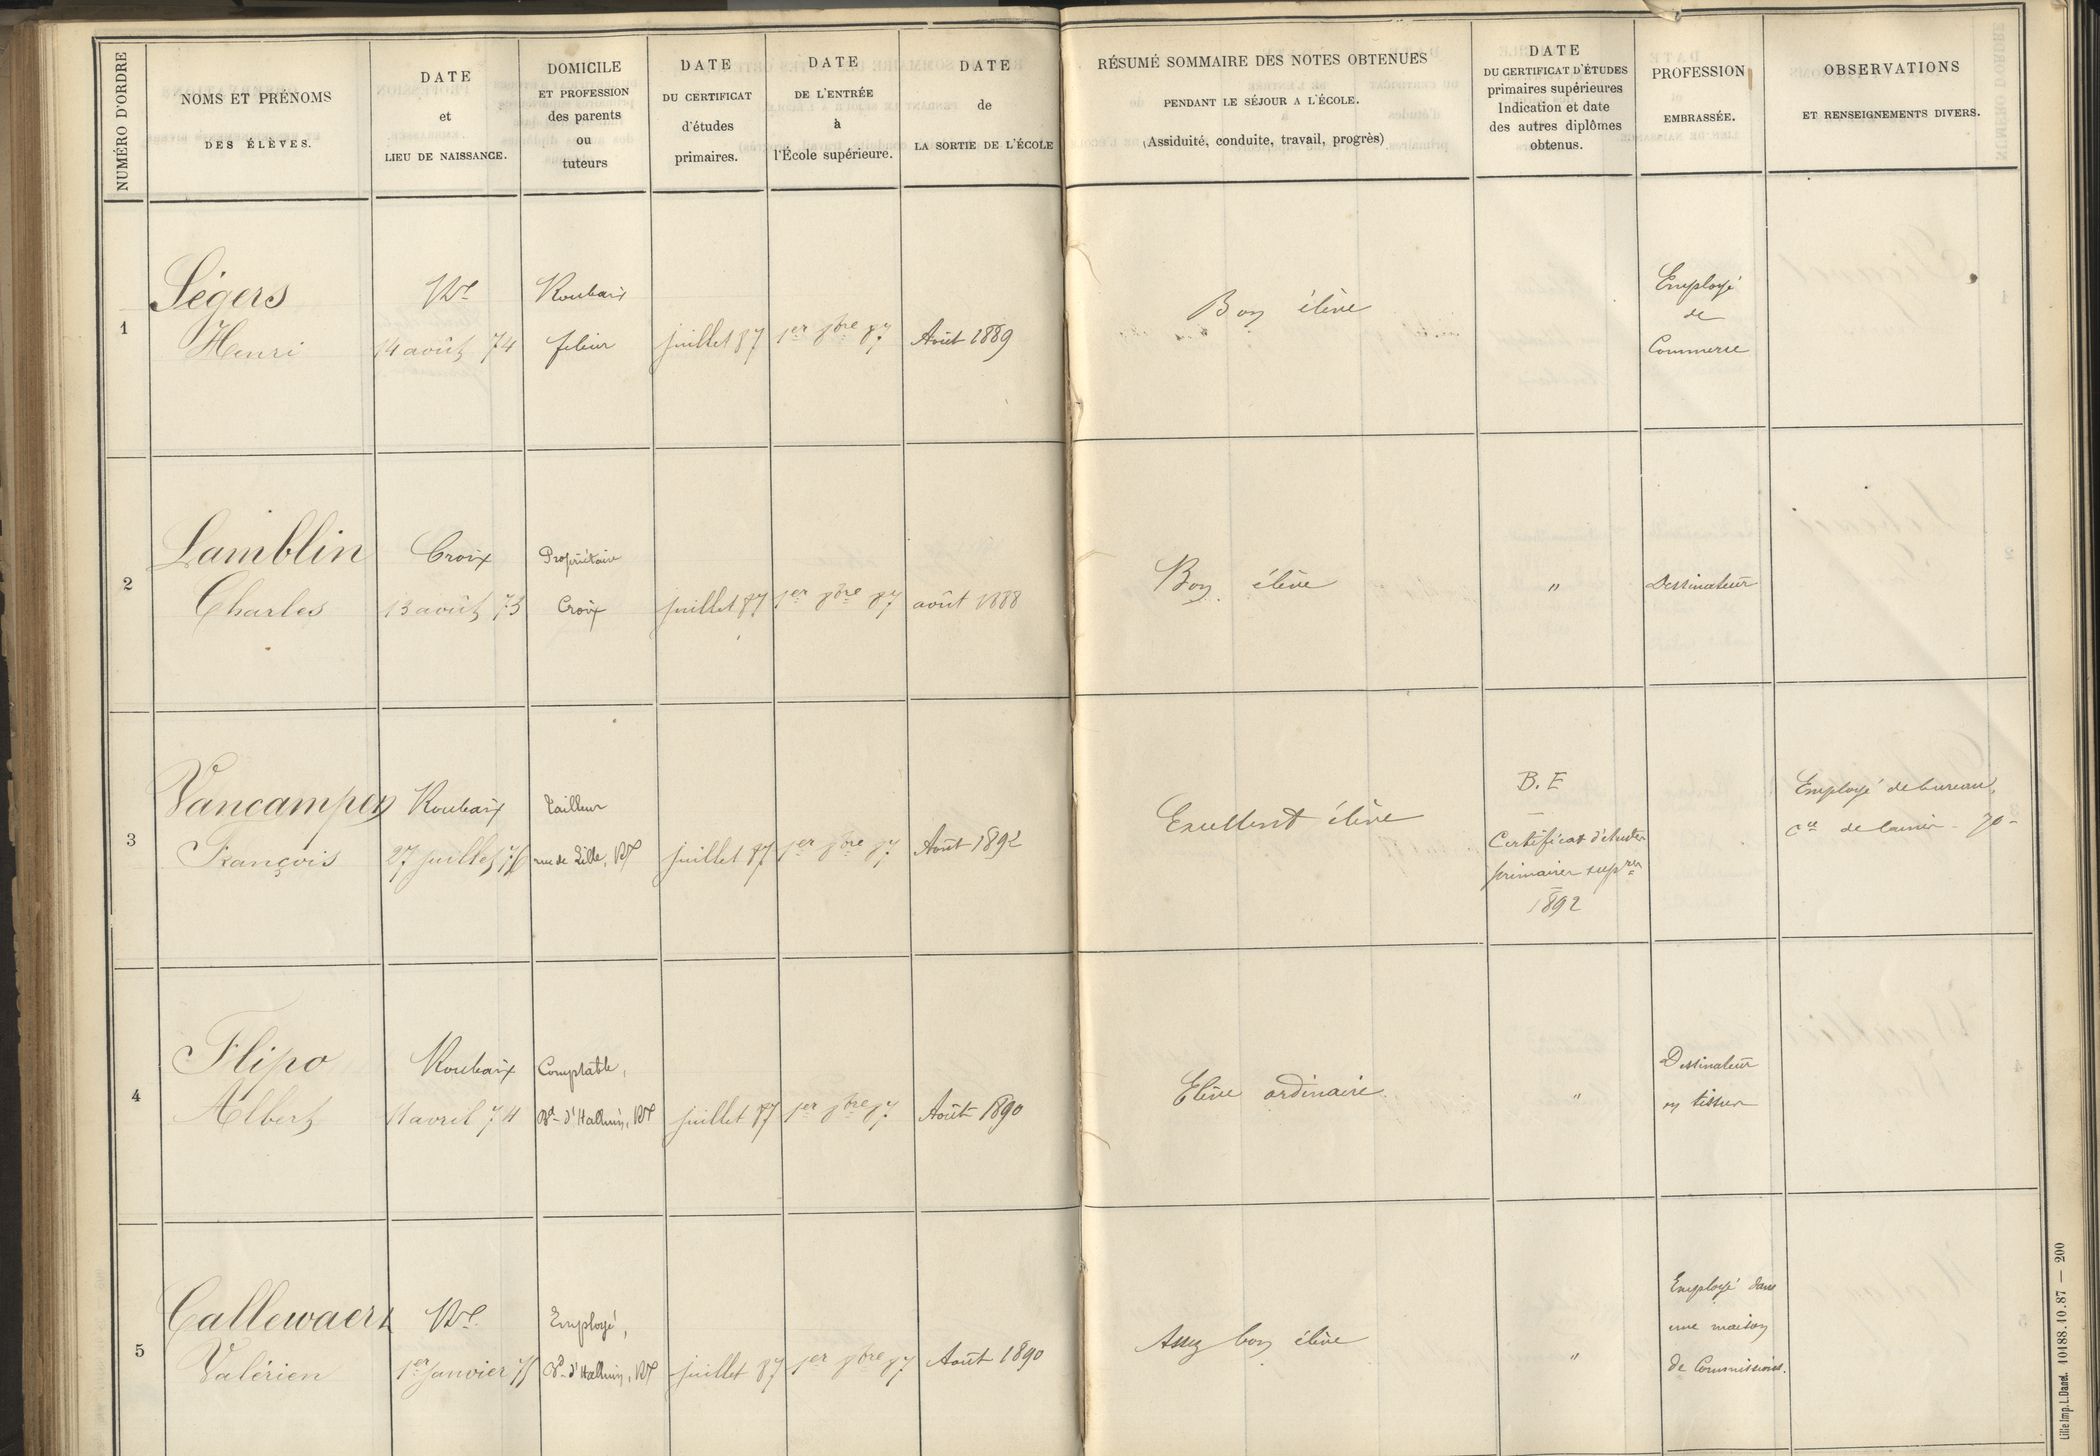 NUMÉRO D'ORDRE
NOMS ET PRÉNOMS
DES ÉLÈVES.
DATE
et
LIEU DE NAISSANCE.
DOMICILE
ET PROFESSION
des parents
ou
tuteurs
DATE
DU CERTIFICAT
d'études
primaires.
DATE
DE L'ENTRÉE
à
l'École supérieure.
DATE
de
LA SORTIE DE L'ÉCOLE
RÉSUMÉ SOMMAIRE DES NOTES OBTENUES
PENDANT LE SÉJOUR A L'ÉCOLE.
(Assiduité, conduite, travail, progrès)
DATE
DU CERTIFICAT D'ÉTUDES
primaires supérieures
Indication et date
des autres diplômes
obtenus.
PROFESSION
EMBRASSÉE.
OBSERVATIONS
ET RENSEIGNEMENTS DIVERS.
1
Ségers
Henri
Rx
14 août 74
Roubaix
fileur
juillet 87
1er 8bre 87
Août 1889
Bon élève
Employé
de
Commerce
2
Lamblin
Charles
Croix
13 août 73
Propriétaire
Croix
juillet 87
1er 8bre 87
août 1888
Bon élève
"
Dessinateur
3
Vancampen
François
Roubaix
27 juillet 76
Tailleur
rue de Lille, Rx
juillet 87
1er 8bre 87
Août 1892
Excellent élève
B. E
Certificat d'études
primaires supres
1892
Employé de bureau,
de laines 70
4
Flipo
Albert
Roubaix
11 avril 74
Comptable,
Bd d'Halluin, Rx
juillet 87
1er 8bre 87
Août 1890
Elève ordinaire
"
Dessinateur
en tissus
5
Callewaert
Valérien
Rx
1er janvier 75
Employé,
Bd d'Halluin, Rx
juillet 87
1er 8bre 87
Août 1890
Assez bon élève
"
Employé dans
une maison
de Commissions.
Lille Imp. L. Danel. 10188.10.87 — 200